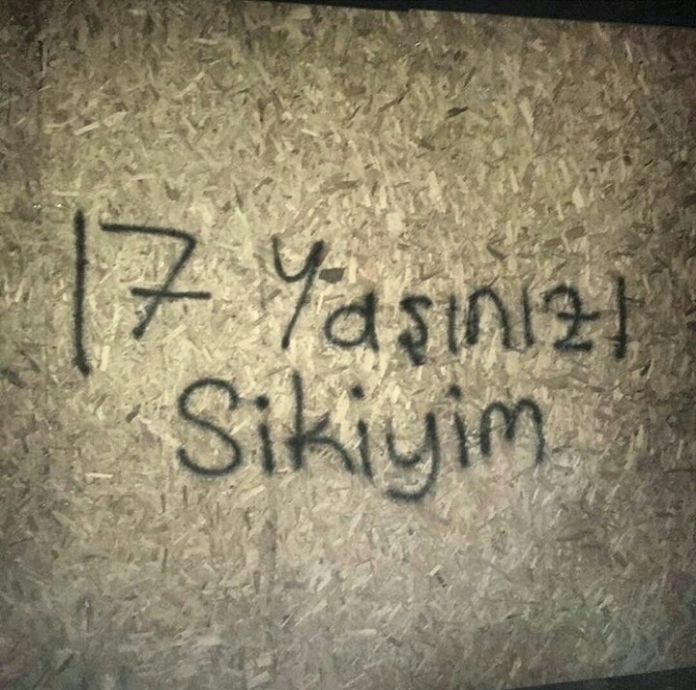 17 Yaşınızı
Sikiyim